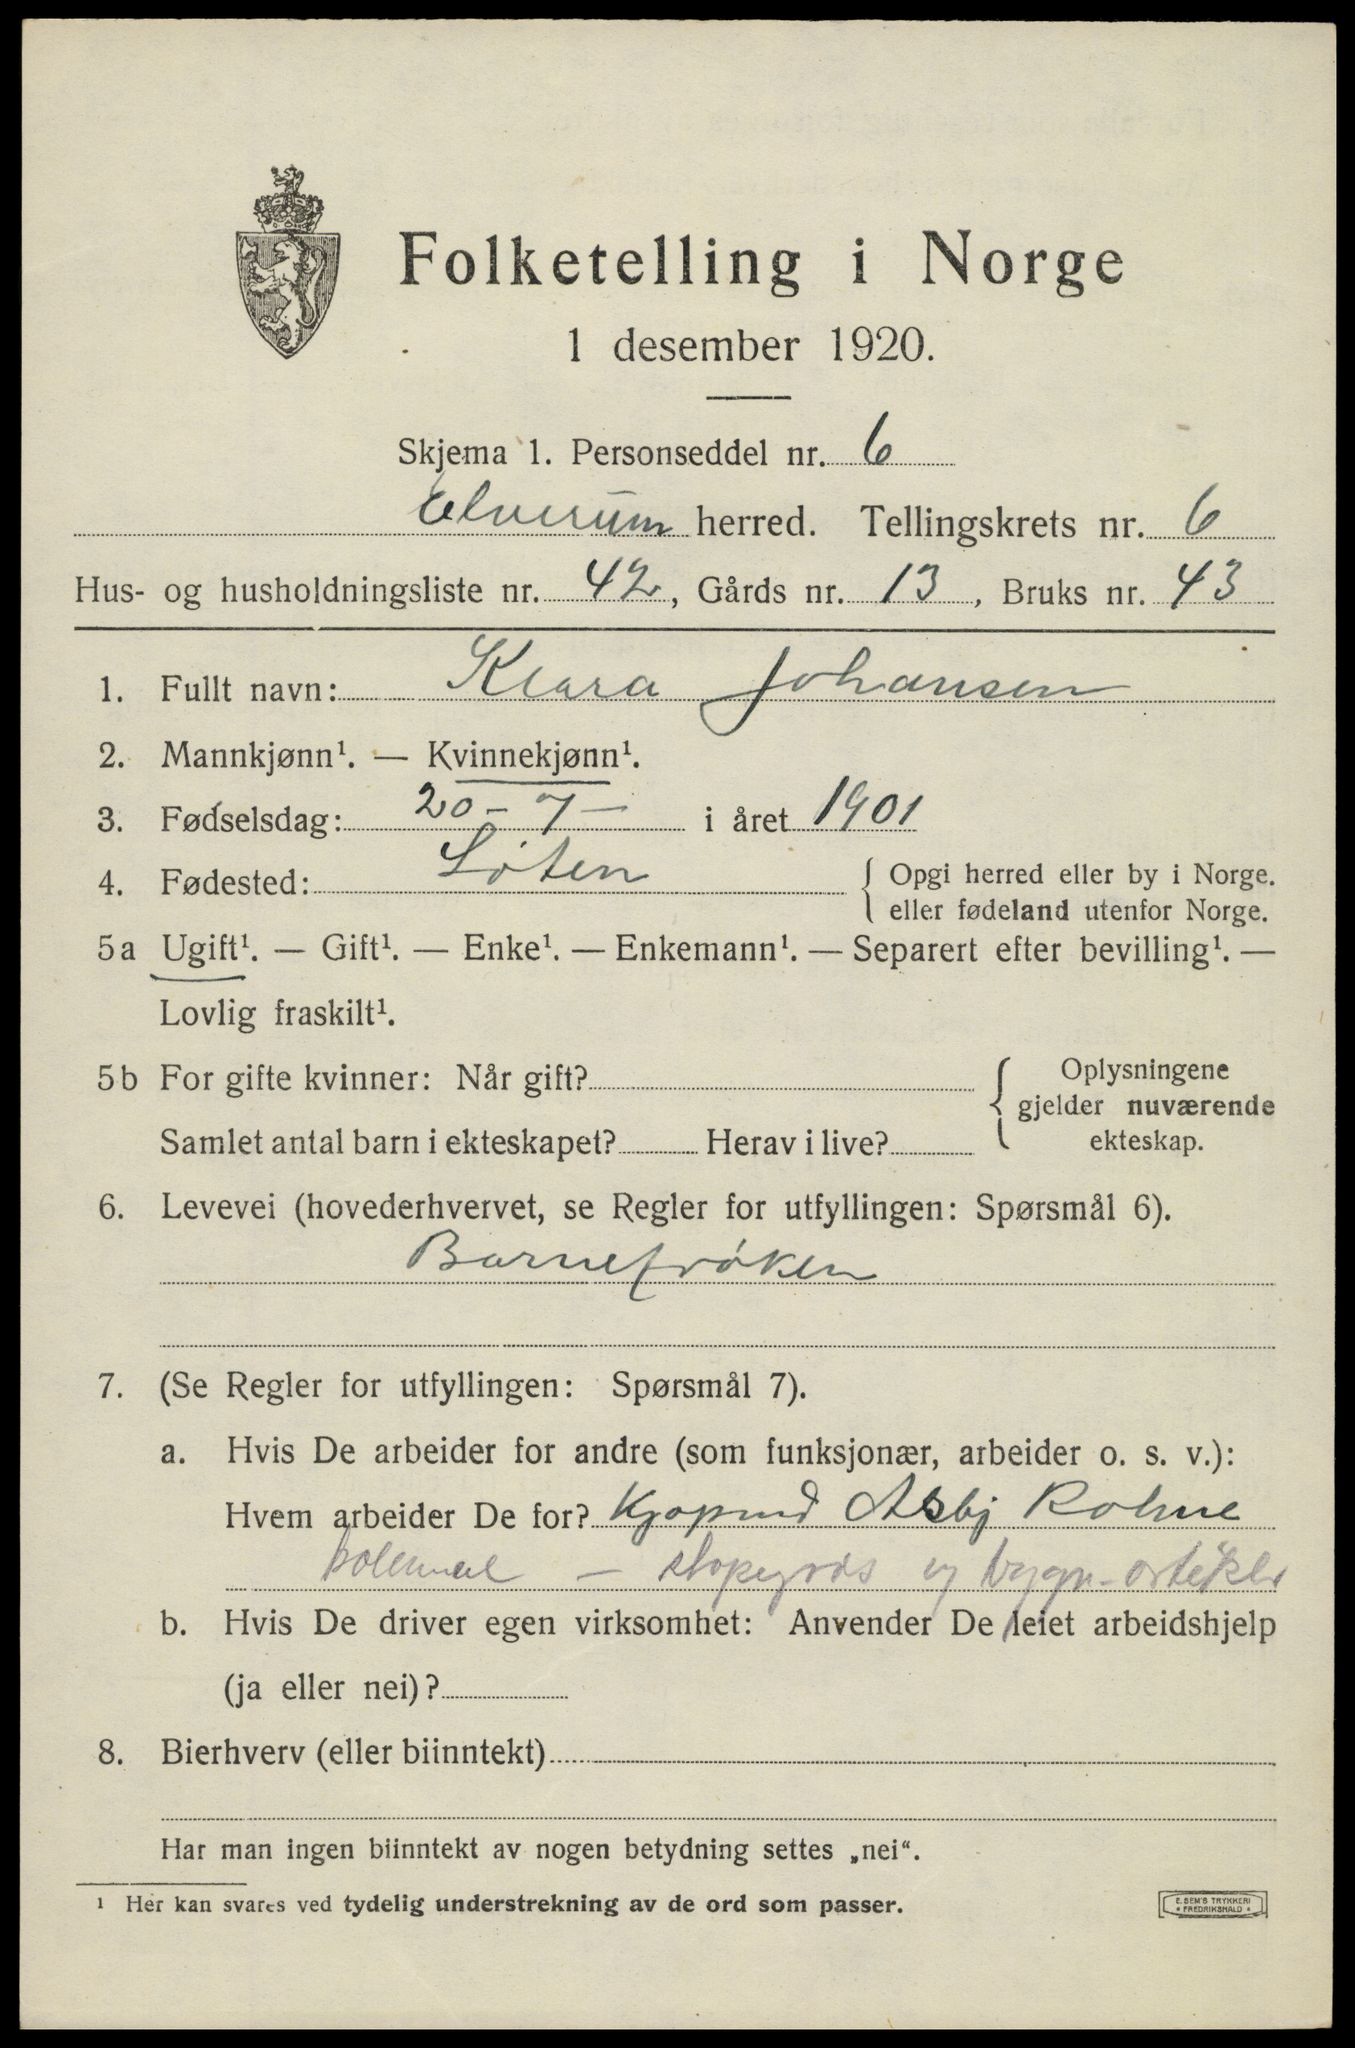 Folketelling i Norge
1 desember 1920.
Skjema 1. Personseddel nr. 6
Elverum herred. Tellingskrets nr. 6
Hus- og husholdningsliste nr. 42, Gårds nr. 13, Bruks nr. 43
1. Fullt navn: Klara Johansen
2. Mannkjønn¹. — Kvinnekjønn¹.
3. Fødselsdag: 20 - 7 - i året 1901
4. Fødested: Löten { Opgi herred eller by i Norge.
eller fødeland utenfor Norge.
5a Ugift¹. — Gift¹. — Enke¹. — Enkemann¹. — Separert efter bevilling¹. —
Lovlig fraskilt¹.
5b For gifte kvinner: Når gift? { Oplysningene
gjelder nuværende
ekteskap.
Samlet antal barn i ekteskapet? Herav i live?
6. Levevei (hovederhvervet, se Regler for utfyllingen: Spørsmål 6).
Barnefröken
7. (Se Regler for utfyllingen: Spørsmål 7).
a. Hvis De arbeider for andre (som funksjonær, arbeider o. s. v.):
Hvem arbeider De for? Kjöpmd Asbj Rohne
- og bygn-artikler
b. Hvis De driver egen virksomhet: Anvender De leiet arbeidshjelp
(ja eller nei)?
8. Bierhverv (eller biinntekt)
Har man ingen biinntekt av nogen betydning settes „nei“.
¹ Her kan svares ved tydelig understrekning av de ord som passer.
E. SEM'S TRYKKERI
* FREDRIKSHALD *